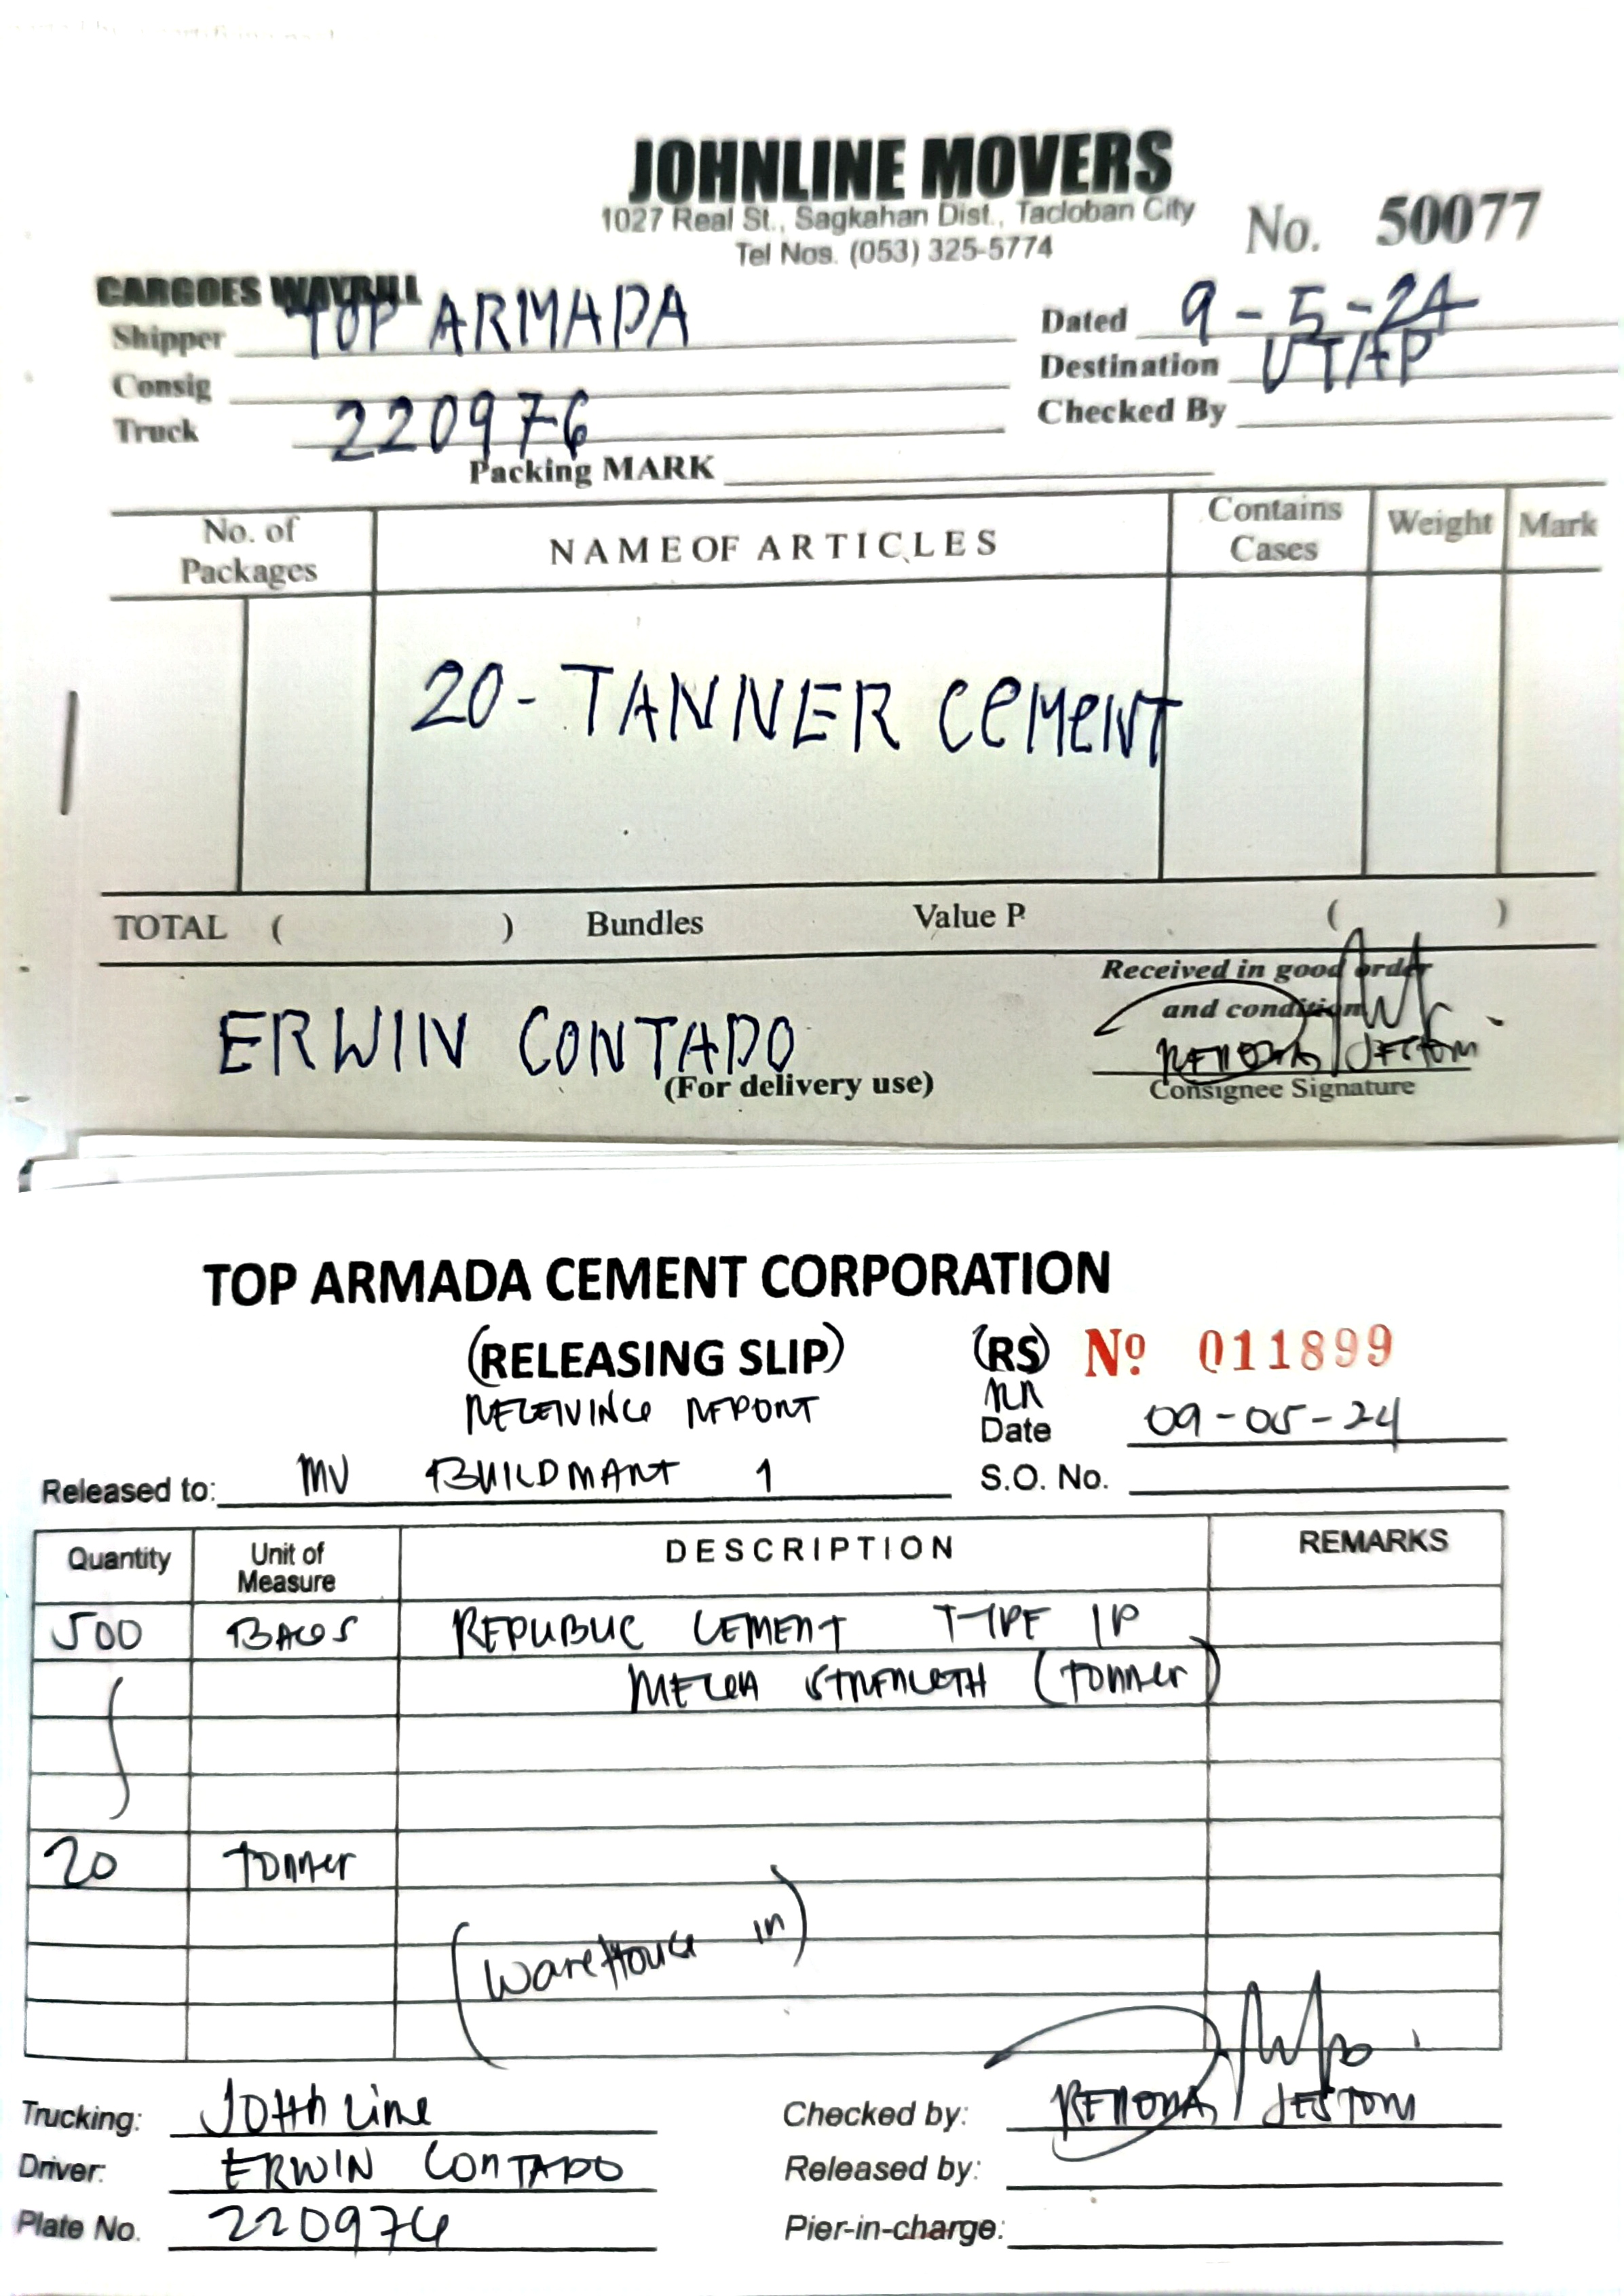 JOHNLINE MOVERS
1027 Real St., Sagkahan Dist., Tacloban City
Tel Nos. (053) 325-5774
No. 50077
CARGOES WAYBILL
Shipper TOP ARMADA
Dated 9-5-24
Consig
Destination UTAP
Truck 220976
Checked By
Packing MARK
No. of Packages NAME OF ARTICLES Contains Cases Weight Mark
20- TANNER CEMENT
TOTAL ( ) Bundles Value P ( )
Received in good order
and condition
ERWIN CONTADO
(For delivery use)
JESTONI
Consignee Signature
TOP ARMADA CEMENT CORPORATION
(RELEASING SLIP) (RS) Nº 011899
RECEIVING REPORT RR
Date 09-05-24
Released to: MV BUILDMART 1 S.O. No.
Quantity Unit of Measure DESCRIPTION REMARKS
500 BAGS REPUBLIC CEMENT TYPE 1P
MEGA STRENGTH (Tonner)
20 Tonner
(Warehouse in)
Trucking: JOHNLine Checked by: JESTONI
Driver: ERWIN CONTADO Released by:
Plate No. 220976 Pier-in-charge: